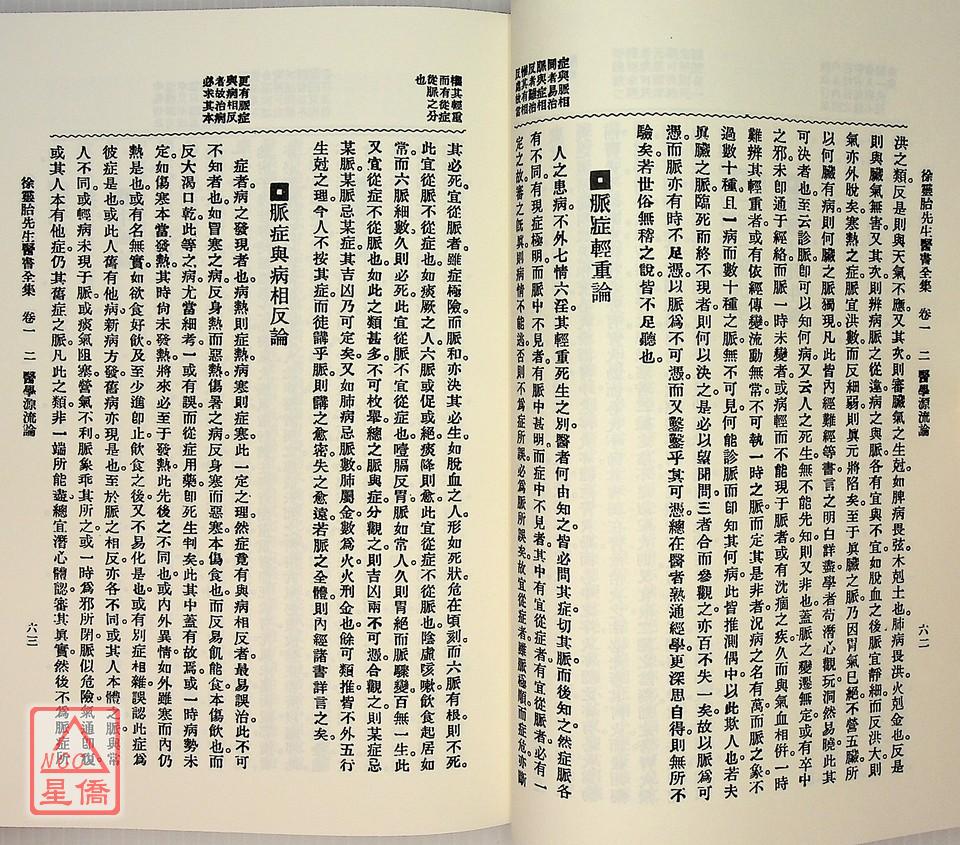 徐靈胎先生醫書全集　卷一　二　醫學源流論
六二
洪之類。反是則與天氣不應。又其次。則審臟氣之生剋。如脾病畏弦。木剋土也。肺病畏洪。火剋金也。反是
則與臟氣無害。又其次。則辨病脈之從違。病之與脈各有宜與不宜。如脫血之後。脈宜靜細。而反洪大。則
氣亦外脫矣。寒熱之症。脈宜洪數。而反細弱。則眞元將陷矣。至于眞臟之脈。乃因胃氣已絕。不營五臟。所
以何臟有病。則何臟之脈獨現。凡此皆內經難經等書。言之明白詳盡。學者苟潛心觀玩。洞然易曉。此其
可決者也。至云診脈卽可以知何病。又云人之死生。無不能先知。則又非也。蓋脈之變遷無定。或有卒中
之邪。未卽通于經絡。而脈一時未變者。或病輕而不能現于脈者。或有沈痼之疾。久而與氣血相併。一時
難辨其輕重者。或有依經傳變。流動無常。不可執一時之脈。而定其是非者。況病之名有萬。而脈之象不
過數十種。且一病而數十種之脈。無不可見。何能診脈而卽知其何病。此皆推測偶中。以此欺人也。若夫
眞臟之脈。臨死而終不現者。則何以決之。是必以望聞問三者合而參觀之。亦百不失一矣。故以脈爲可
憑。而脈亦有時不足憑。以脈爲不可憑。而又鑿鑿乎其可憑。總在醫者熟通經學。更深思自得。則無所不
驗矣。若世俗無稽之說。皆不足聽也。
脈症輕重論
症與脈相
同者易治
脈與症相
反者難治
人之患病。不外七情六淫。其輕重死生之別。醫者何由知之。皆必問其症。切其脈。而後知之。然症脈各
有不同。有現症極明。而脈中不見者。有脈中甚明。而症中不見者。其中有宜從症者。有宜從脈者。必有一
定之故。審之旣眞。則病情不能逃。否則不爲症所誤。必爲脈所誤矣。故宜從症者。雖脈極順。而症危。亦斷
權其輕重
而有從症
從脈之分
也
其必死。宜從脈者。雖症極險。而脈和。亦決其必生。如脫血之人。形如死狀。危在頃刻。而六脈有根則不死。
此宜從脈不從症也。如痰厥之人。六脈或促或絕。痰降則愈。此宜從症不從脈也。陰虛咳嗽。飲食起居如
常。而六脈細數。久則必死。此宜從脈不宜從症也。噎膈反胃。脈如常人。久則胃絕而脈驟變。百無一生。此
又宜從症不從脈也。如此之類甚多。不可枚舉。總之脈與症分觀之。則吉凶兩不可憑。合觀之。則某症忌
某脈。某脈忌某症。其吉凶乃可定矣。又如肺病忌脈數。肺屬金。數爲火。火刑金也。餘可類推。皆不外五行
生剋之理。今人不按其症。而徒講乎脈。則講之愈密。失之愈遠。若脈之全體。則內經諸書詳言之矣。
脈症與病相反論
更有脈症
與病相反
者故治病
必求其本
症者。病之發現者也。病熱則症熱。病寒則症寒。此一定之理。然症竟有與病相反者。最易誤治。此不可
不知者也。如冒寒之病。反身熱而惡熱。傷暑之病。反身寒而惡寒。本傷食也。而反易飢能食。本傷飲也。而
反大渴口乾。此等之病。尤當細考。一或有誤。而從症用藥。卽死生判矣。此其中蓋有故焉。或一時病勢未
定。如傷寒本當發熱。其時尙未發熱。將來必至于發熱。此先後之不同也。或內外異情。如外雖寒而內仍
熱是也。或有名無實。如欲食好飲。及至少進卽止。飲食之後。又不易化是也。或有別症相雜。誤認此症爲
彼症是也。或此人舊有他病。新病方發。舊病亦現是也。至於脈之相反。亦各不同。或其人本體之脈與常
人不同。或輕病未現于脈。或痰氣阻塞。營氣不利。脈象乖其所之。或一時爲邪所閉。脈似危險。氣通卽復。
或其人本有他症。仍其舊症之脈。凡此之類。非一端所能盡。總宜潛心體認。審其眞實。然後不爲脈症所
徐靈胎先生醫書全集　卷一　二　醫學源流論
六三
NCC
星僑